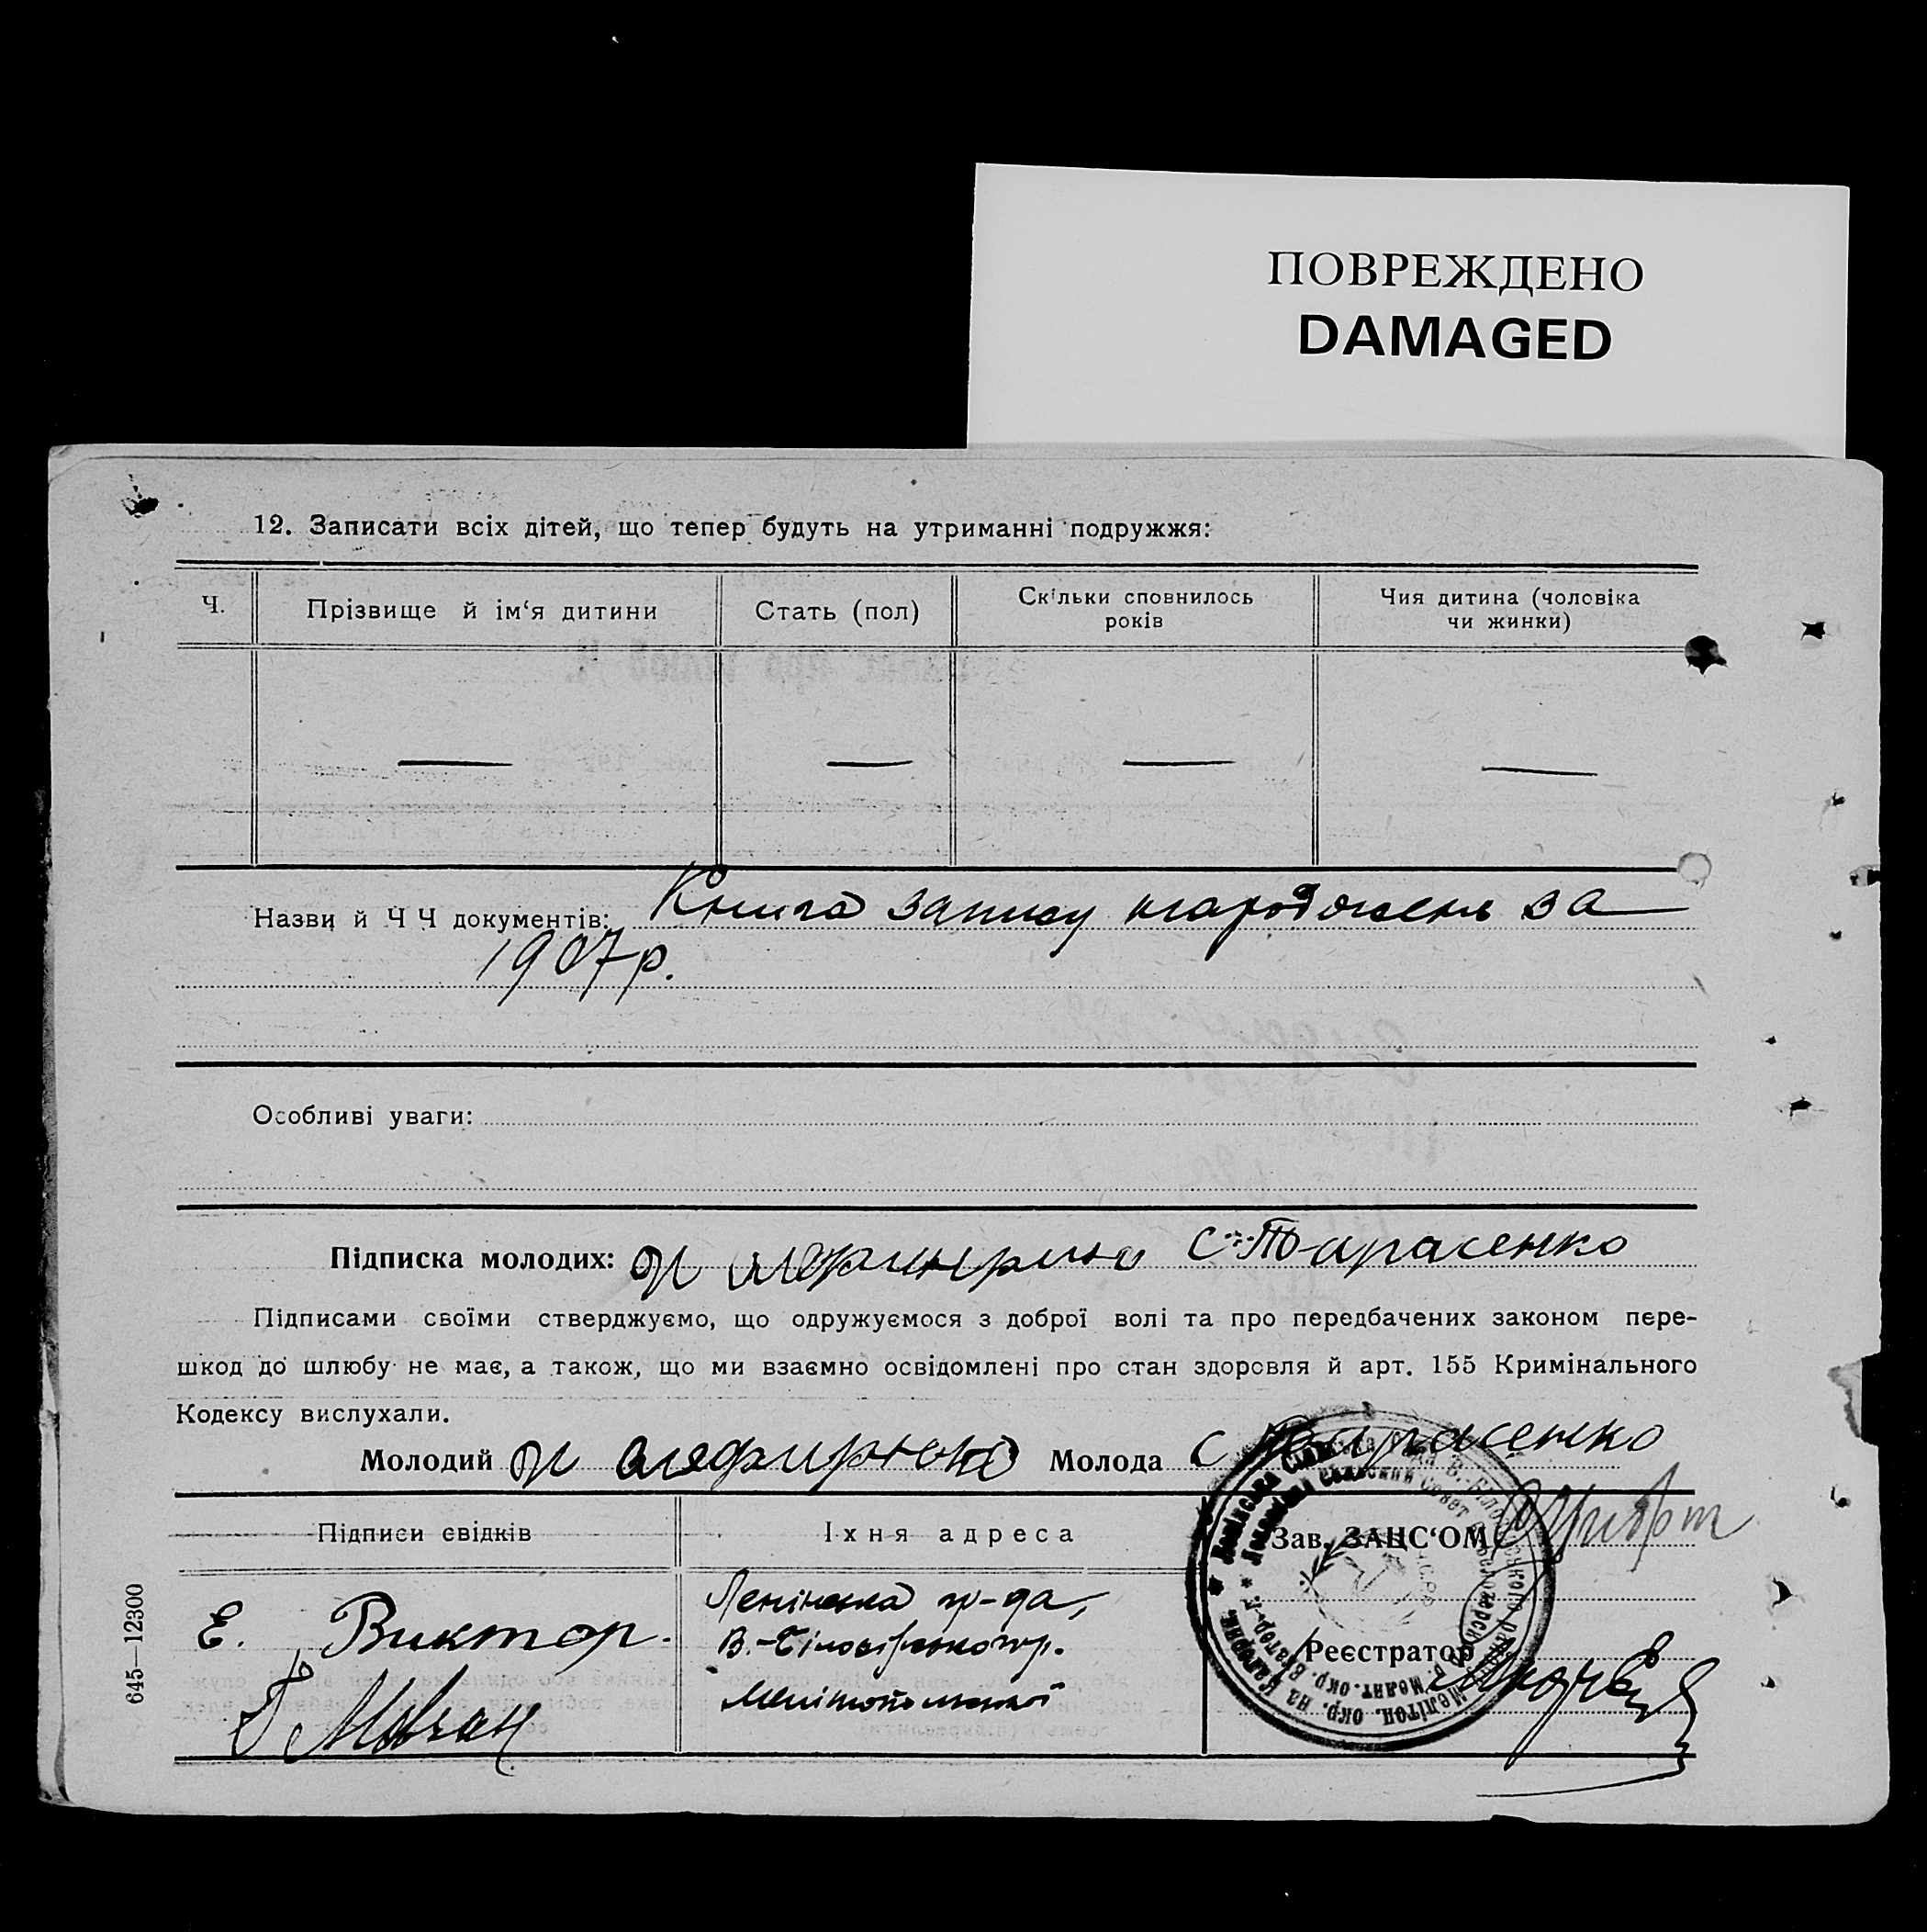 ПОВРЕЖДЕНО
DAMAGED
12. Записати всіх дітей, що тепер будуть на утриманні подружжя:
Ч.
Прізвище й ім‘я дитини
Стать (пол)
Скільки сповнилось
років
Чия дитина (чоловіка
чи жинки)
— — — —
Назви й Ч Ч документів: Книга запису народжень за
1907 р.
Особливі уваги:
Підписка молодих: С. Тарасенко
Підписами своїми стверджуємо, що одружуємося з доброї волі та про передбачених законом пере-
шкод до шлюбу не має, а також, що ми взаємно освідомлені про стан здоровля й арт. 155 Кримінального
Кодексу вислухали.
Молодий Молода С Тарасенко
Підписи свідків
Їхня адреса
Зав. ЗАЦС‘ОМ
Е. Виктор.
Мовчан
Ленінська гр-да,
В.-Білозірського р.
Мелітопольської
Реєстратор
645—12300